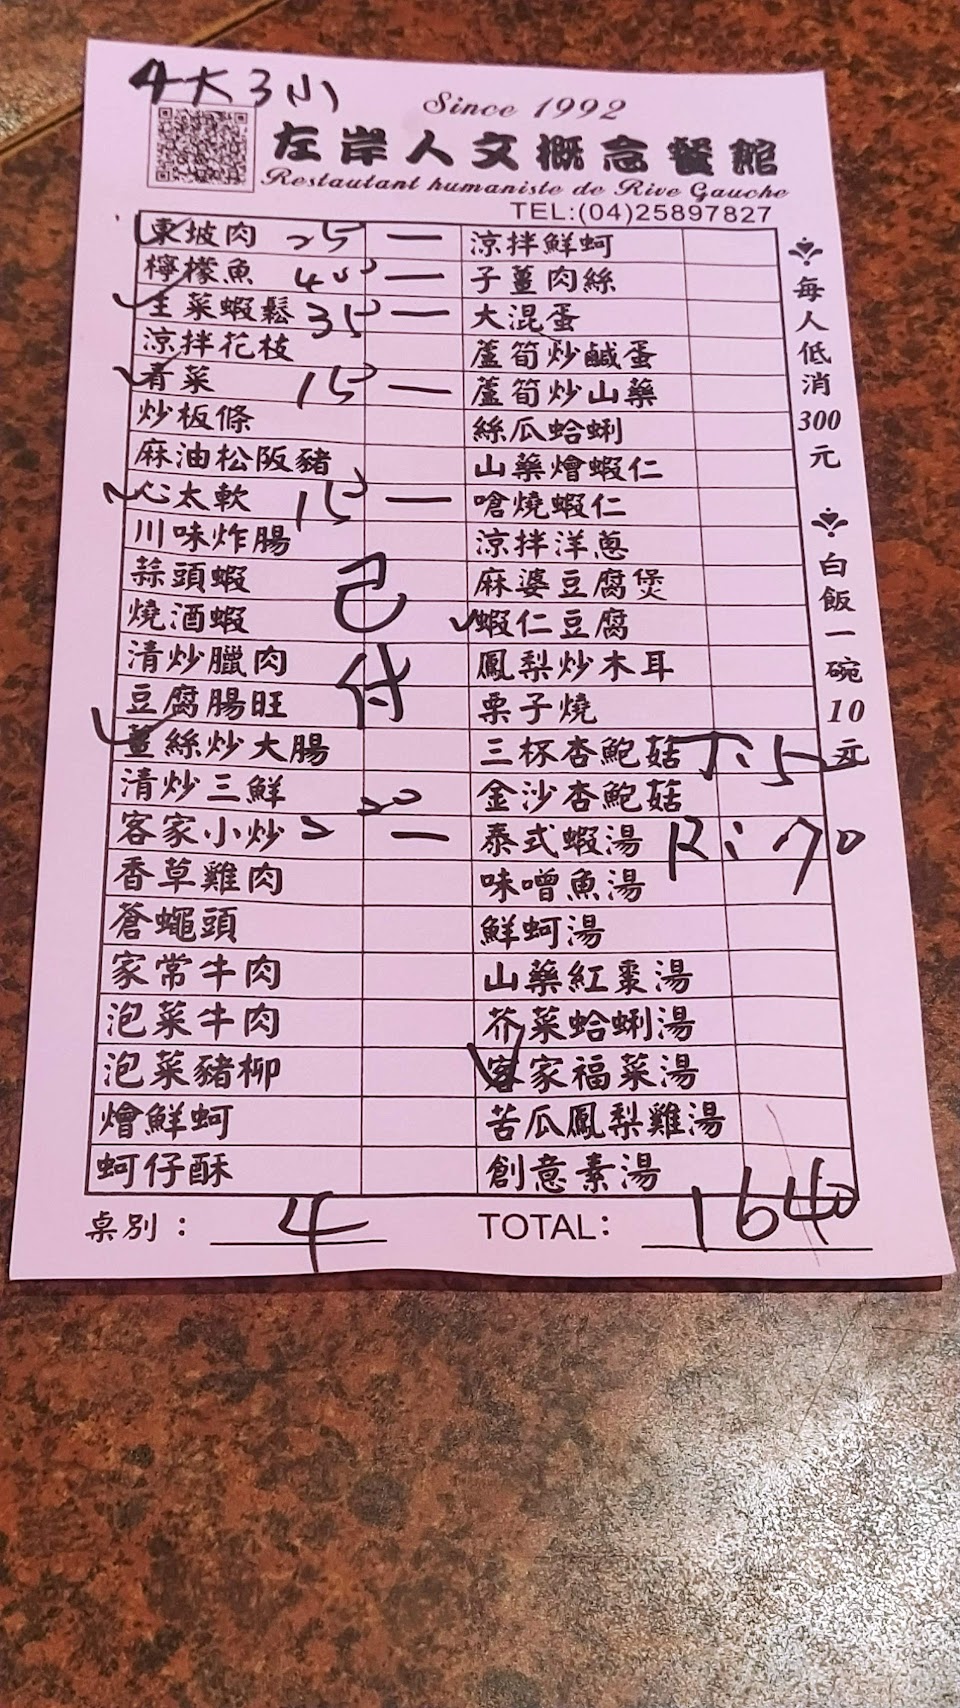 4大3小
Since 1992
左岸人文概念餐館
Restautant humaniste de Rive Gauche
TEL:(04)25897827
東坡肉 25 一 涼拌鮮蚵
檸檬魚 40 一 子薑肉絲
生菜蝦鬆 35 一 大混蛋
涼拌花枝 蘆筍炒鹹蛋
青菜 15 一 蘆筍炒山藥
炒板條 絲瓜蛤蜊
麻油松阪豬 山藥燴蝦仁
心太軟 15 一 嗆燒蝦仁
川味炸腸 涼拌洋蔥
蒜頭蝦 麻婆豆腐煲
燒酒蝦 蝦仁豆腐
已付
清炒臘肉 鳳梨炒木耳
豆腐腸旺 栗子燒
薑絲炒大腸 三杯杏鮑菇
T:5
清炒三鮮 金沙杏鮑菇
客家小炒 一 泰式蝦湯
R:70
香草雞肉 味噌魚湯
蒼蠅頭 鮮蚵湯
家常牛肉 山藥紅棗湯
泡菜牛肉 芥菜蛤蜊湯
泡菜豬柳 客家福菜湯
燴鮮蚵 苦瓜鳳梨雞湯
蚵仔酥 創意素湯
桌別: 4 TOTAL: 1640
每人低消300元
白飯一碗10元